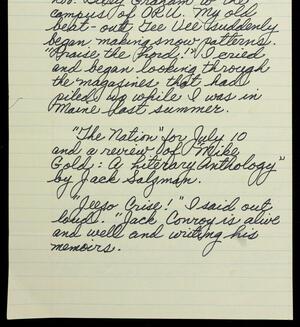 Rev. Billy Graham to the
campus of ORU. My old
beat-out Tee Vee suddenly
began making snow patterns.
"Praise the Lord!" I cried
and began looking through
the magazines that had
piled up while I was in
Maine last summer.
"The Nation" for July 10
and a review of "Mike
Gold: A Literary Anthology"
by Jack Salzman.
"Jeeso Crise!" I said out
loud. "Jack Conroy is alive
and well and writing his
memoirs.